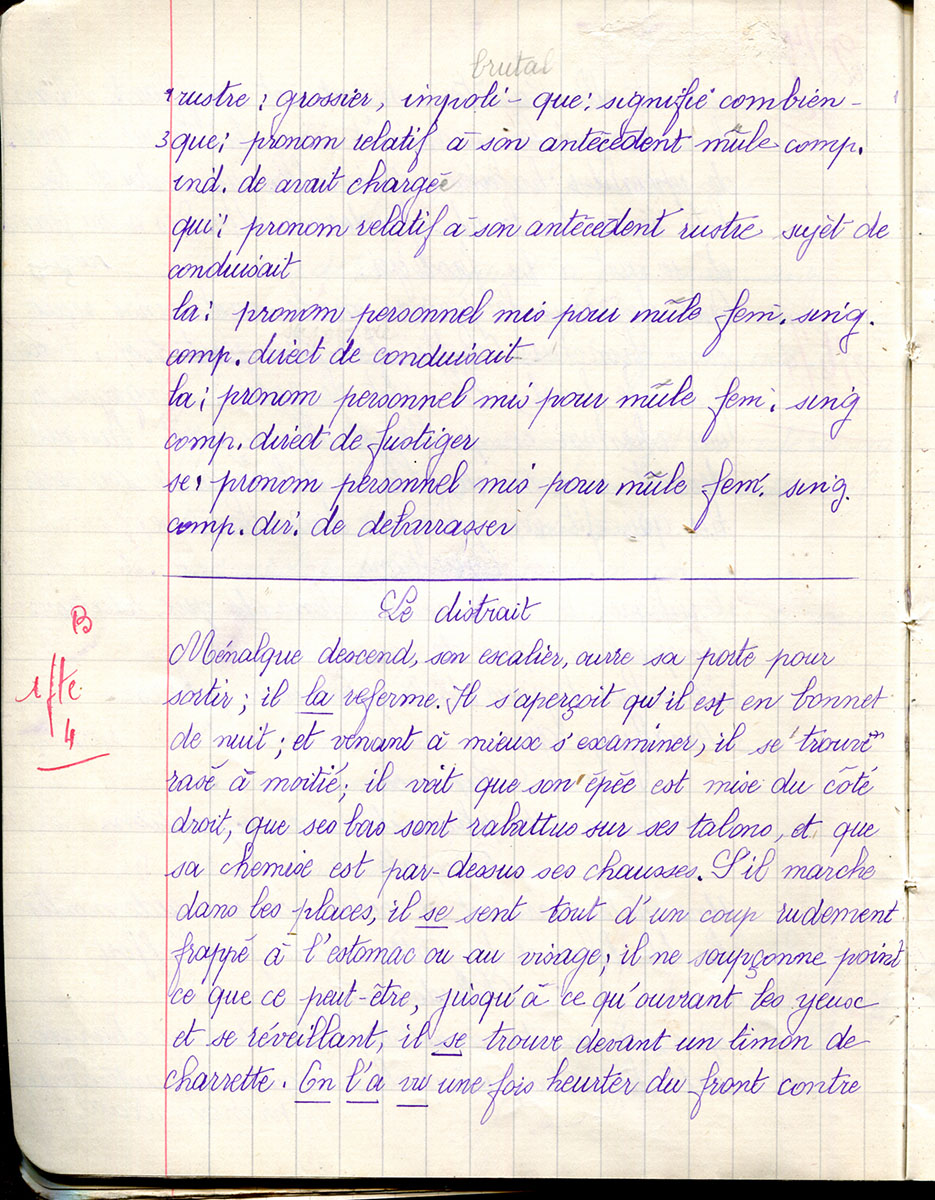 brutal
1 rustre ; grossier, impoli - que : signifie combien -
3 que ; pronom relatif à son antécédent mûle comp.
ind. de avait chargée
qui ; pronom relatif à son antécédent rustre sujet de
conduisait
la ; pronom personnel mis pour mûle fém. sing.
comp. direct de conduisait
la ; pronom personnel mis pour mûle fem. sing
comp. direct de fustiger
se : pronom personnel mis pour mûle fém. sing.
comp. dir. de debarrasser
Le distrait
Ménalque descend, son escalier, ouvre sa porte pour
sortir ; il la referme. Il s'aperçoit qu'il est en bonnet
de nuit ; et venant à mieux s'examiner, il se trouve
rasé à moitié ; il voit que son épée est mise du côté
droit, que ses bas sont rabattus sur ses talons, et que
sa chemise est par-dessus ses chausses. S'il marche
dans les places, il se sent tout d'un coup rudement
frappé à l'estomac ou au visage ; il ne soupçonne point
ce que ce peut-être, jusqu'à ce qu'ouvrant les yeux
et se réveillant, il se trouve devant un timon de
charrette. On l'a vu une fois heurter du front contre
B
4